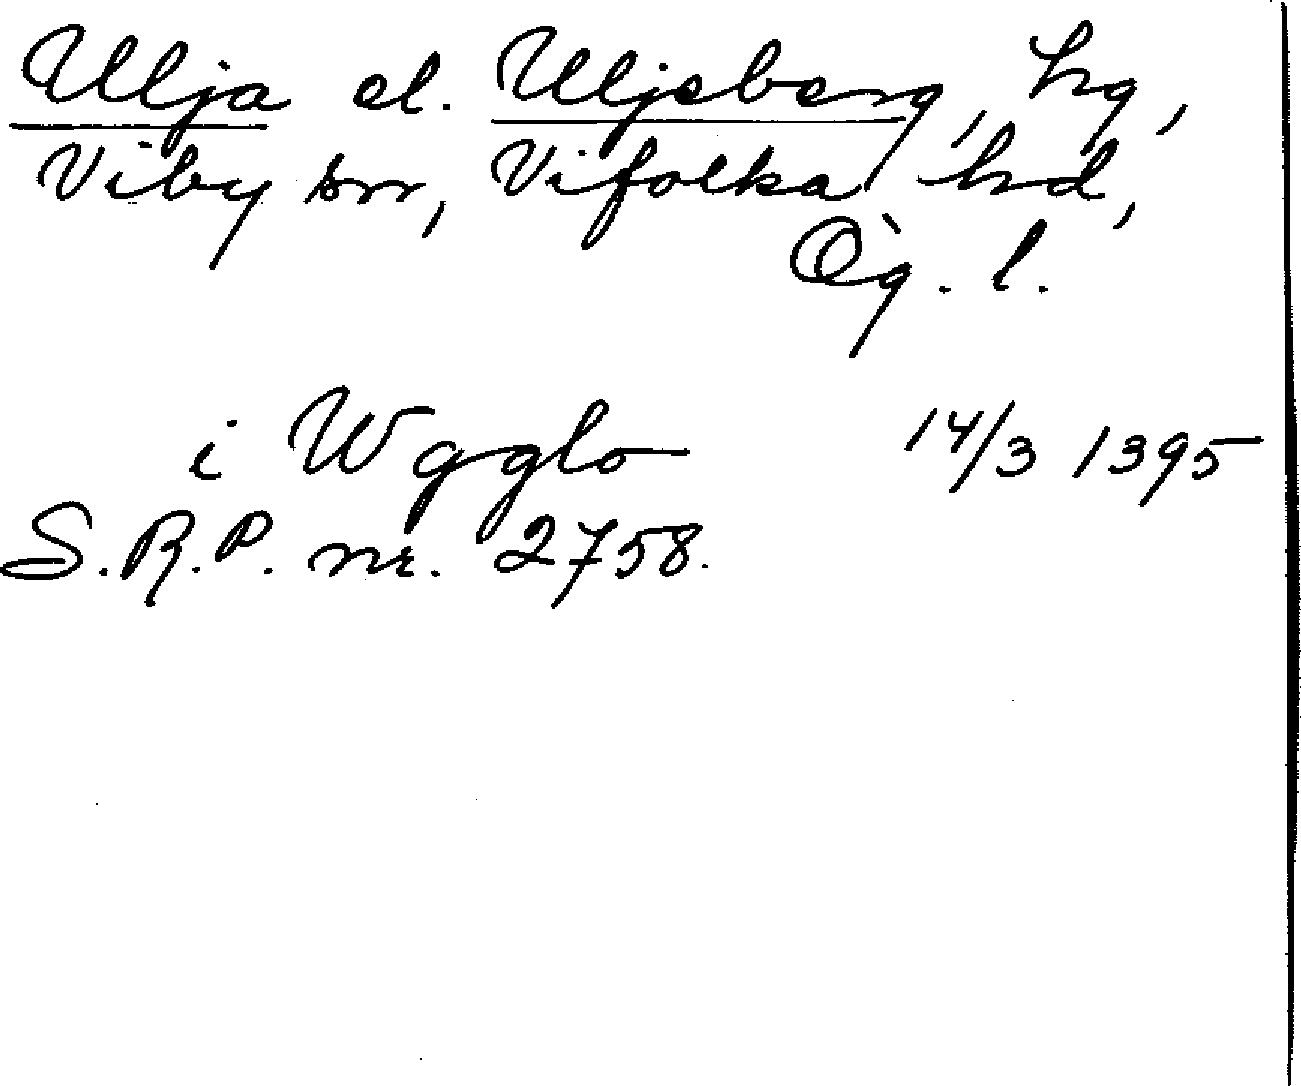 Ulja el. Uljeberg, hg,
Viby sn, Vifolka hd,
Ög. l.
i Wgglo 14/3 1395
S.R.P. nr. 2758.